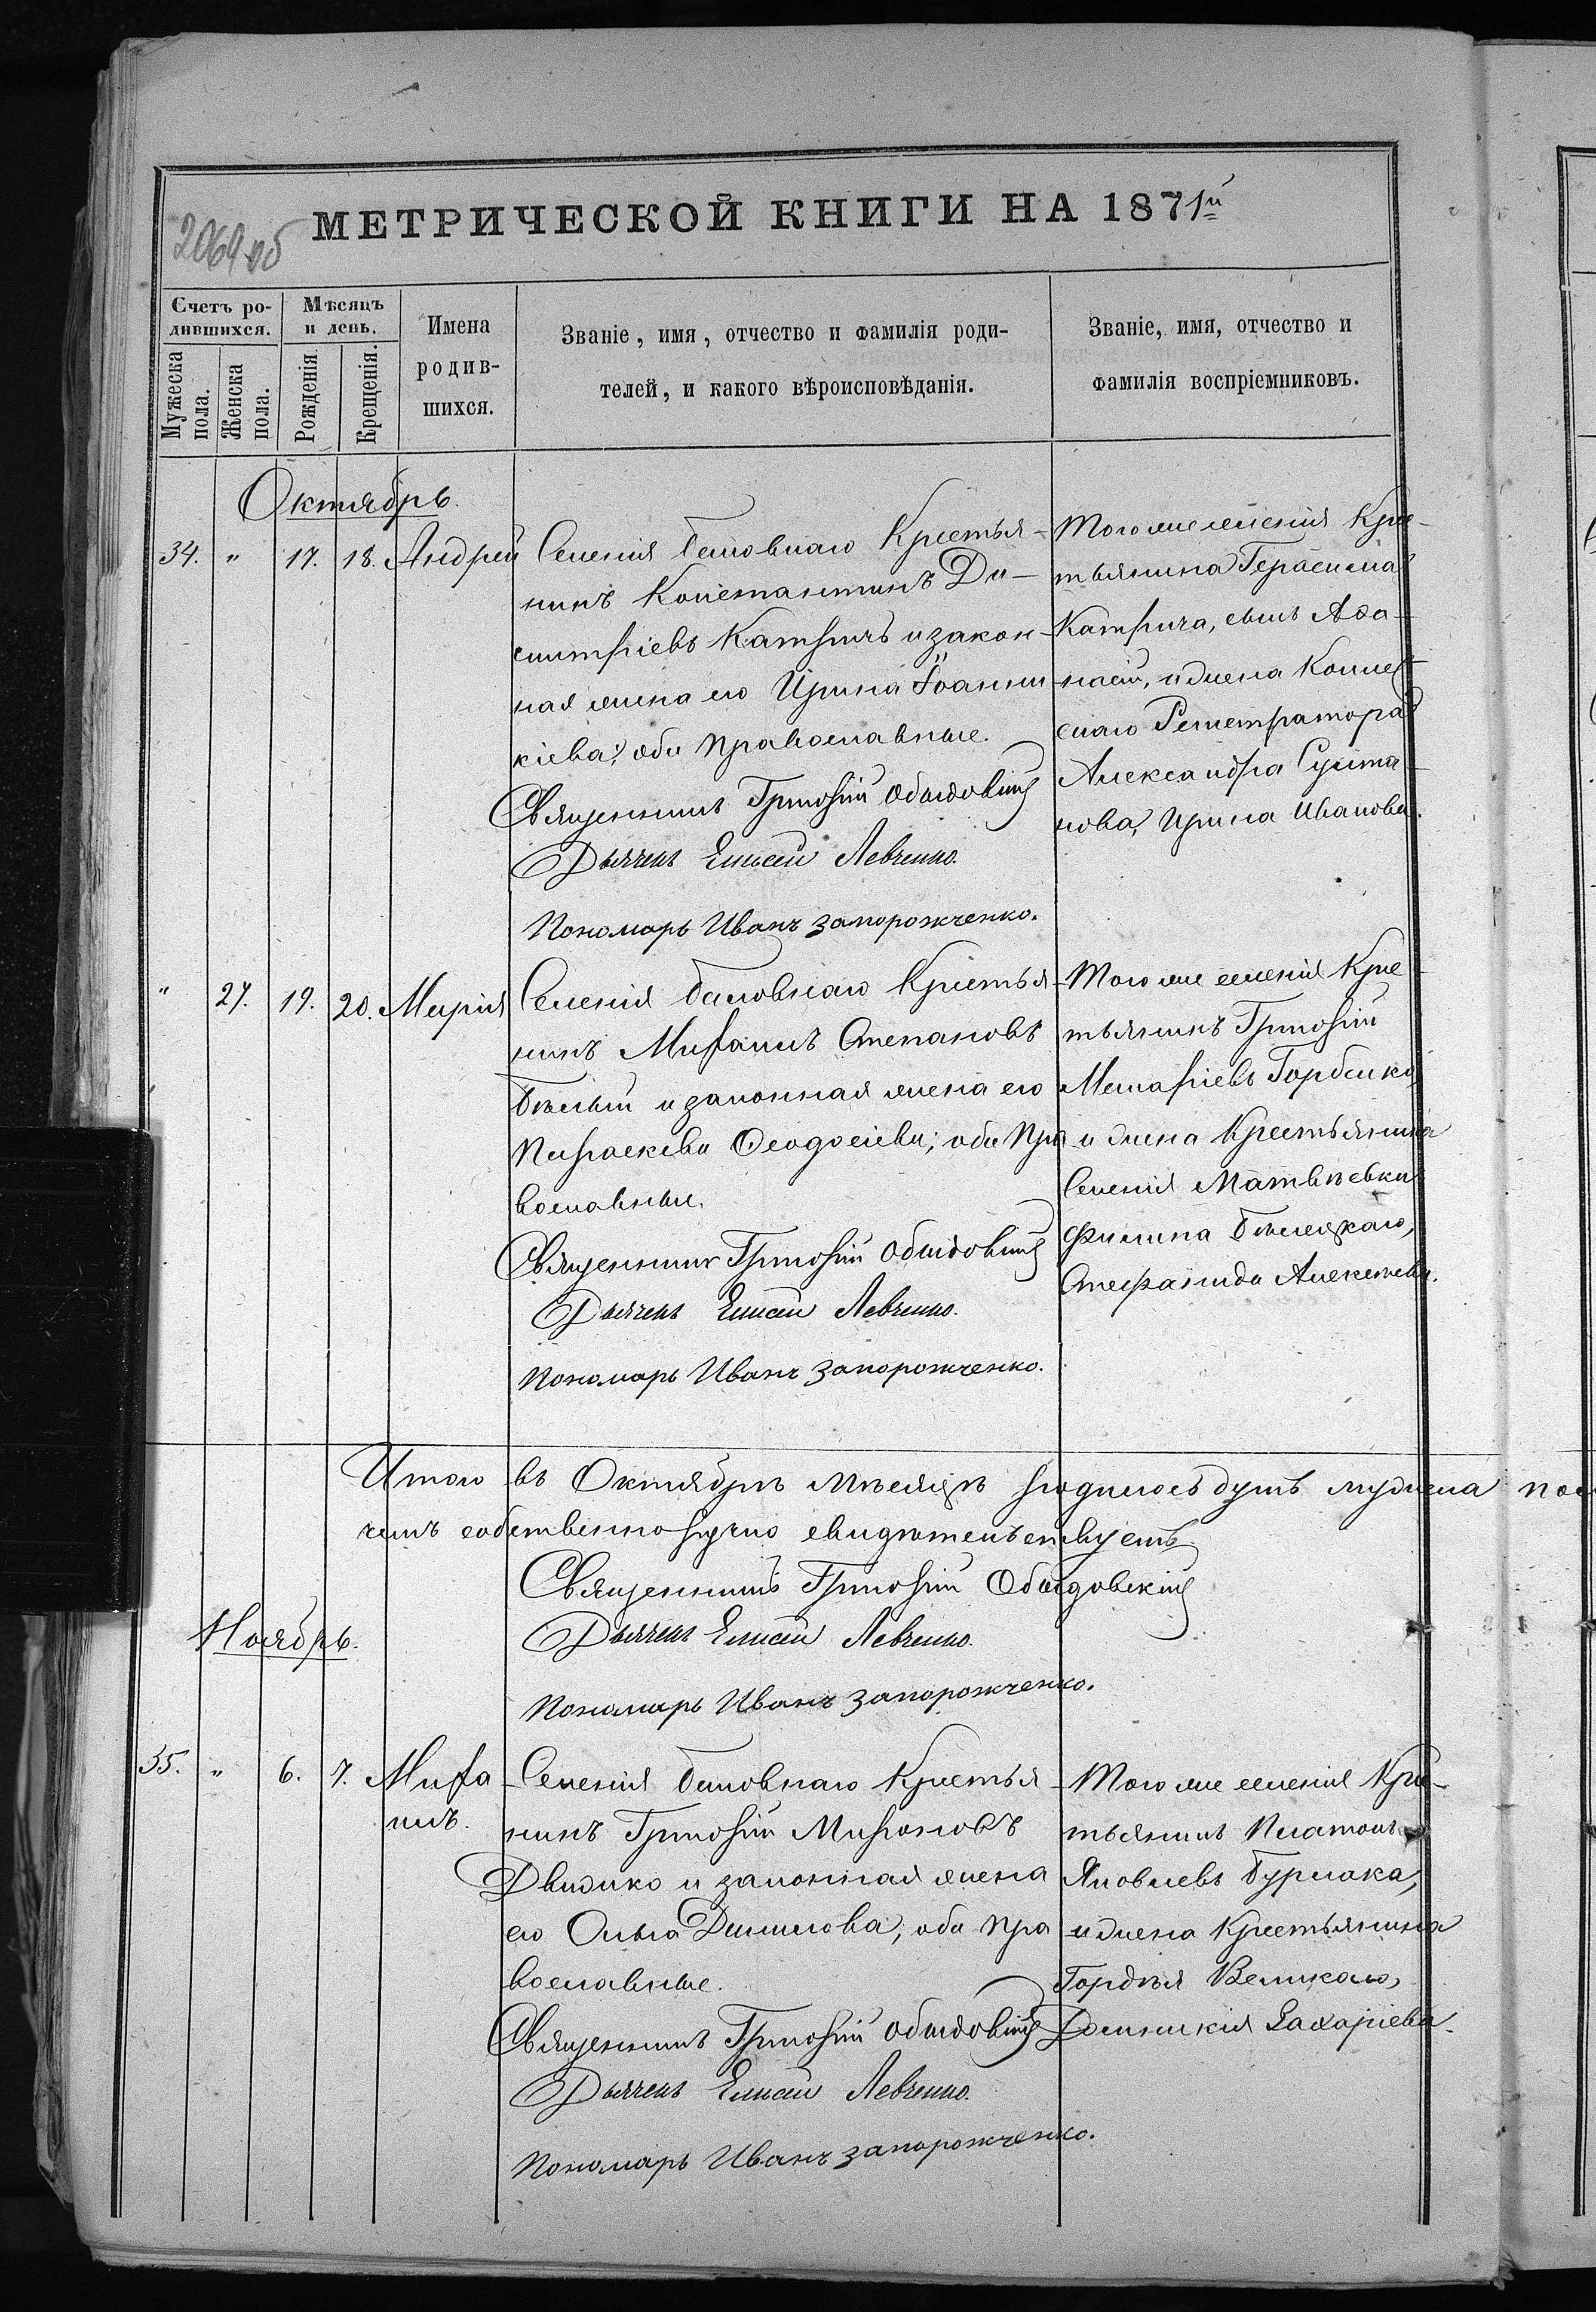 МЕТРИЧЕСКОЙ КНИГИ НА 1871й
2064 об
Счетъ ро-
дившихся.
Мужеска
пола.
Женска
пола.
Мѣсяцъ
и день.
Рожденія.
Крещенія.
Имена
родив-
шихся.
Званіе, имя, отчество и фамилія роди-
телей, и какого вѣроисповѣданія.
Званіе, имя, отчество и
фамилія воспріемниковъ.
Октябрь.
34. " 17. 18. Андрей
Селенія Баловнаго Крестья-
нинъ Константинъ Ди-
митріевъ Катричъ и закон-
ная жена его Ирина Іоанни-
кіева; оба православные.
Священникъ Григорій Обыдовскій
Дьячекъ Елисей Левченко.
Пономарь Иванъ Запорожченко.
Того же селенія Крес-
тьянина Герасима
Катрича, сынъ Афа-
насій, и жена Коллеж-
скаго Регистратора
Александра Султа-
нова, Ирина Иванова.
" 27. 19. 20. Марія
Селенія Баловнаго Крестья-
нинъ Михаилъ Степановъ
Бѣлый и законная жена его
Параскева Феодосіева; оба Пра-
вославные.
Священникъ Григорій Обыдовскій
Дьячекъ Елисей Левченко.
Пономарь Иванъ Запорожченко.
Того же селенія Крес-
тьянинъ Григорій
Макаріевъ Горбенко,
и жена Крестьянина
Селенія Матвѣевки
Филипа Бѣлецкаго,
Стефанида Алексѣева.
Итого въ Октябрѣ мѣсяцѣ родилось душъ мужеска пол
чемъ собственноручно свидѣтельствуетъ
Священникъ Григорій Обыдовскій
Дьячекъ Елисей Левченко.
Пономарь Иванъ Запорожченко.
Ноябрь.
35. " 6. 7. Миха-
илъ.
Селенія Баловнаго Крестья-
нинъ Григорій Мироновъ
Движко и законная жена
его Ольга Данилова, оба Пра
вославные.
Священникъ Григорій Обыдовскій
Дьячекъ Елисей Левченко.
Пономарь Иванъ Запорожченко.
Того же селенія Крес-
тьянинъ Платонъ
Яковлевъ Бурлака,
и жена Крестьянина
Гордѣя Великаго,
Домникія Захаріева.